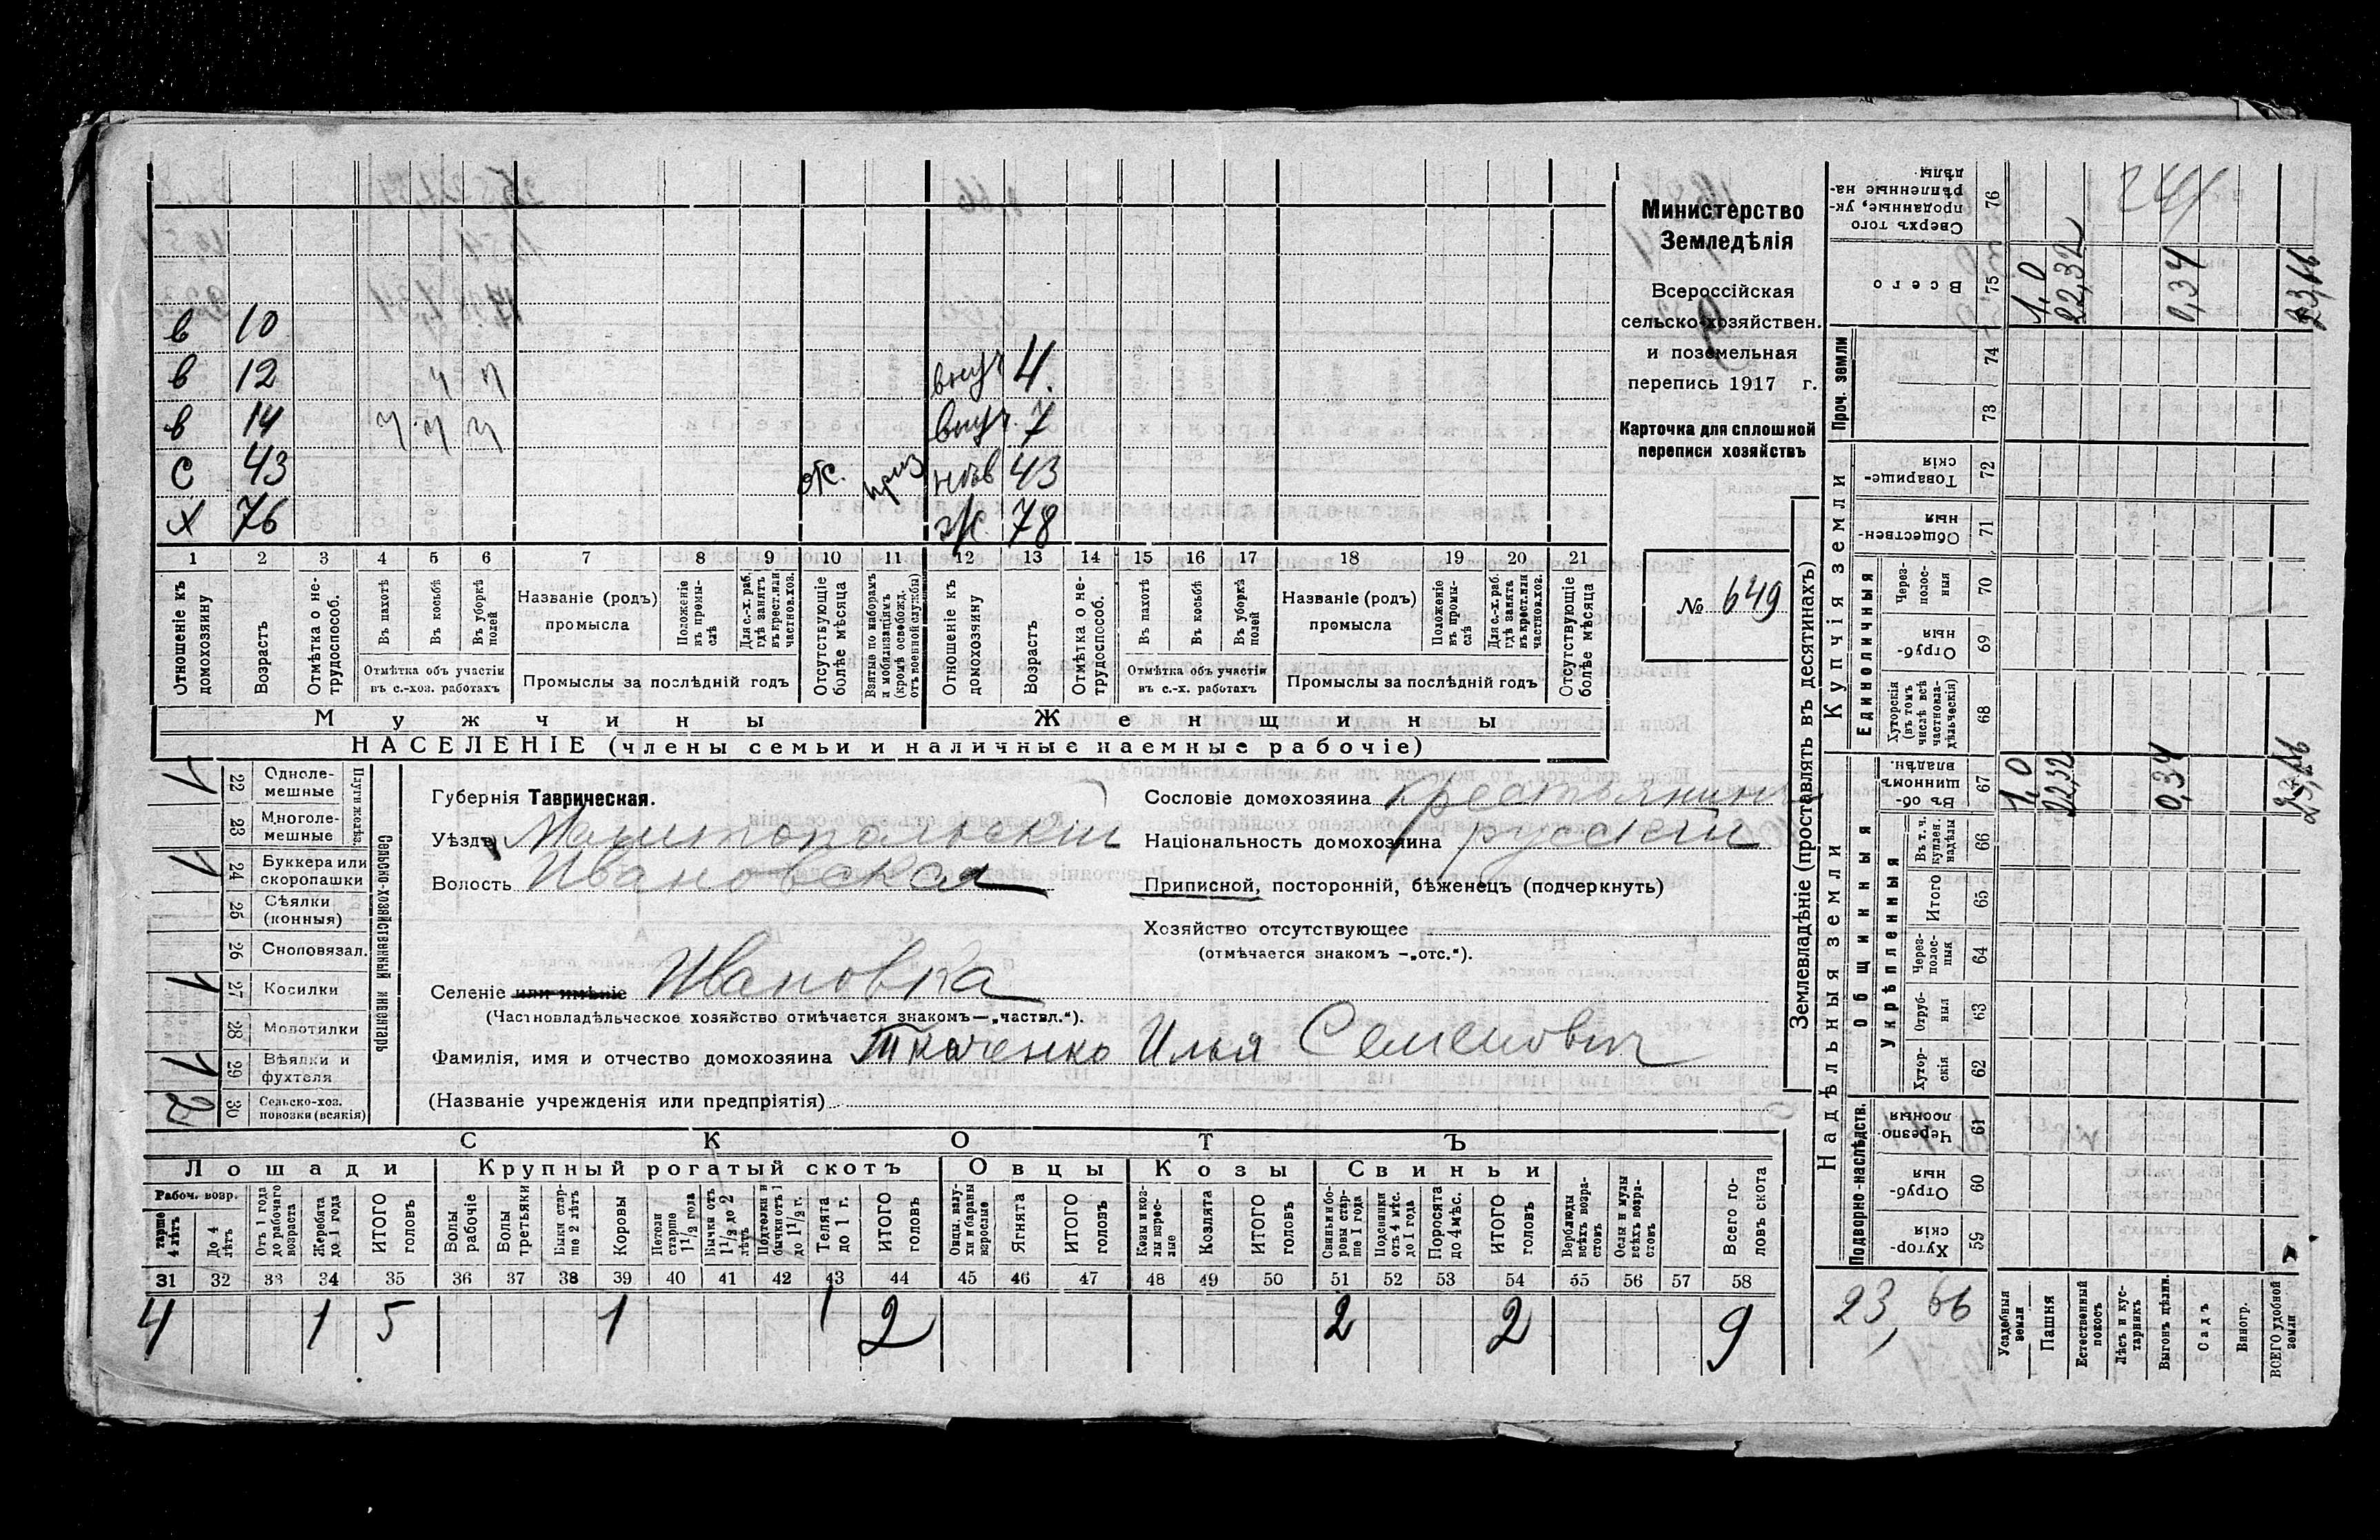 в 10
в 12 ч ч внуч 4.
в 14 ч ч ч внуч 7
С 43 от. приз нев 43
Х 76 ж. 78
1 2 3 4 5 6 7 8 9 10 11 12 13 14 15 16 17 18 19 20 21
Отношеніе къ домохозяину
Возрастъ
Отмѣтка о нетрудоспособ.
Въ пахотѣ
Въ косьбѣ
Въ уборкѣ полей
Отмѣтка объ участіи въ с.-хоз. работахъ
Названіе (родъ) промысла
Положеніе въ промыслѣ
Для с.-х. раб. гдѣ занятъ въ крест. или частнов. хоз.
Промыслы за послѣдній годъ
Отсутствующіе болѣе мѣсяца
Взятые по наборамъ и мобилизаціямъ (кромѣ освобожд. отъ военной службы)
Отношеніе къ домохозяину
Возрастъ
Отмѣтка о нетрудоспособ.
Въ пахотѣ
Въ косьбѣ
Въ уборкѣ полей
Отмѣтка объ участіи въ с.-х. работахъ
Названіе (родъ) промысла
Положеніе въ промыслѣ
Для с.-х. раб. гдѣ занята въ крест. или частнов. хоз.
Промыслы за послѣдній годъ
Отсутствующіе болѣе мѣсяца
Мужчины Женщины
НАСЕЛЕНІЕ (члены семьи и наличные наемные рабочіе)
Министерство
Земледѣлія
Всероссійская
сельско-хозяйствен.
и поземельная
перепись 1917 г.
9
Карточка для сплошной
переписи хозяйствъ
№ 649
1 22 Одноле-
мешные
23 Многоле-
мешные
Плуги желѣз.
1 24 Буккера или
скоропашки
25 Сѣялки
(конныя)
26 Сноповязал.
1 27 Косилки
28 Молотилки
1 29 Вѣялки и
фухтеля
2 30 Сельско-хоз.
повозки (всякія)
Сельско-хозяйственный инвентарь
Губернія Таврическая.
Уѣздъ Мелитопольскій
Волость Ивановская
Селеніе или имѣніе Ивановка
(Частновладѣльческое хозяйство отмѣчается знакомъ—„частвл.“).
Фамилія, имя и отчество домохозяина Ткаченко Илья Семенович
(Названіе учрежденія или предпріятія)
Сословіе домохозяина крестьянинъ
Національность домохозяина русскій
Приписной, посторонній, бѣженецъ (подчеркнуть)
Хозяйство отсутствующее
(отмѣчается знакомъ -„отс.“).
СКОТЪ
Лошади Крупный рогатый скотъ Овцы Козы Свиньи
Рабоч. возр.
тарше 4 лѣтъ
До 4 лѣтъ
Отъ 1 года до рабочаго возраста
Жеребята до 1 года
ИТОГО головъ
Волы рабочіе
Волы третьяки
Быки старше 2 лѣтъ
Коровы
Нетели старше 1 1/2 года
Бычки отъ 1 1/2 до 2 лѣтъ
Подтелки и бычки отъ 1 до 1 1/2 г.
Телята до 1 г.
ИТОГО головъ
Овцы, валухи и бараны взрослые
Ягнята
ИТОГО головъ
Козы и козлы взрослые
Козлята
ИТОГО головъ
Свиньи и боровы старше 1 года
Подсвинки отъ 4 мѣс. до 1 года
Поросята до 4 мѣс.
ИТОГО головъ
Верблюды всѣхъ возрастовъ
Ослы и мулы всѣхъ возрастовъ
Всего головъ скота
31 32 33 34 35 36 37 38 39 40 41 42 43 44 45 46 47 48 49 50 51 52 53 54 55 56 57 58
4 1 5 1 1 2 2 2 9
Землевладѣніе (проставлять въ десятинахъ)
Купчія земли
Надѣльныя земли
Сверхъ того проданные, укрѣпленные надѣлы 76
Всего 75 1,0 22,32 0,34 23,66
Проч. земли
74
73
Товарищескія 72
Общественныя 71
Единоличныя
Черезполосныя 70
Отрубныя 69
Хуторскія (въ томъ числѣ всѣ частновладѣльческія) 68
Общинныя
Въ общинномъ владѣн. 67 1,0 22,32 0,34 23,66
Укрѣпленныя
Въ т. ч. куплен. надѣлы 66
Итого 65
Черезполосныя 64
Отрубныя 63
Хуторскія 62
Подворно-наслѣдств.
Черезполосныя 61
Отрубныя 60
Хуторскія 59
23,66
Усадебныя земли
Пашня
Естественный покосъ
Лѣсъ и кустарникъ
Выгонъ цѣлин.
Садъ
Виногр.
ВСЕГО удобной земли